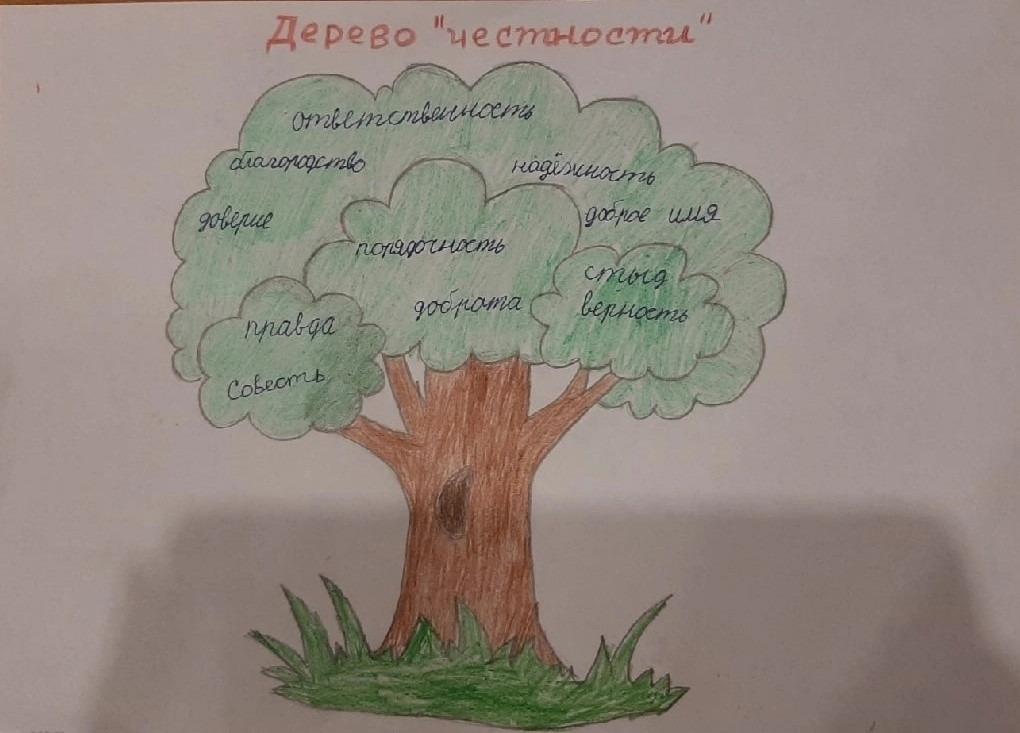 Дерево "честности"
ответственность
благородство
надёжность
доверие
доброе имя
порядочность
доброта
стыд
верность
правда
совесть